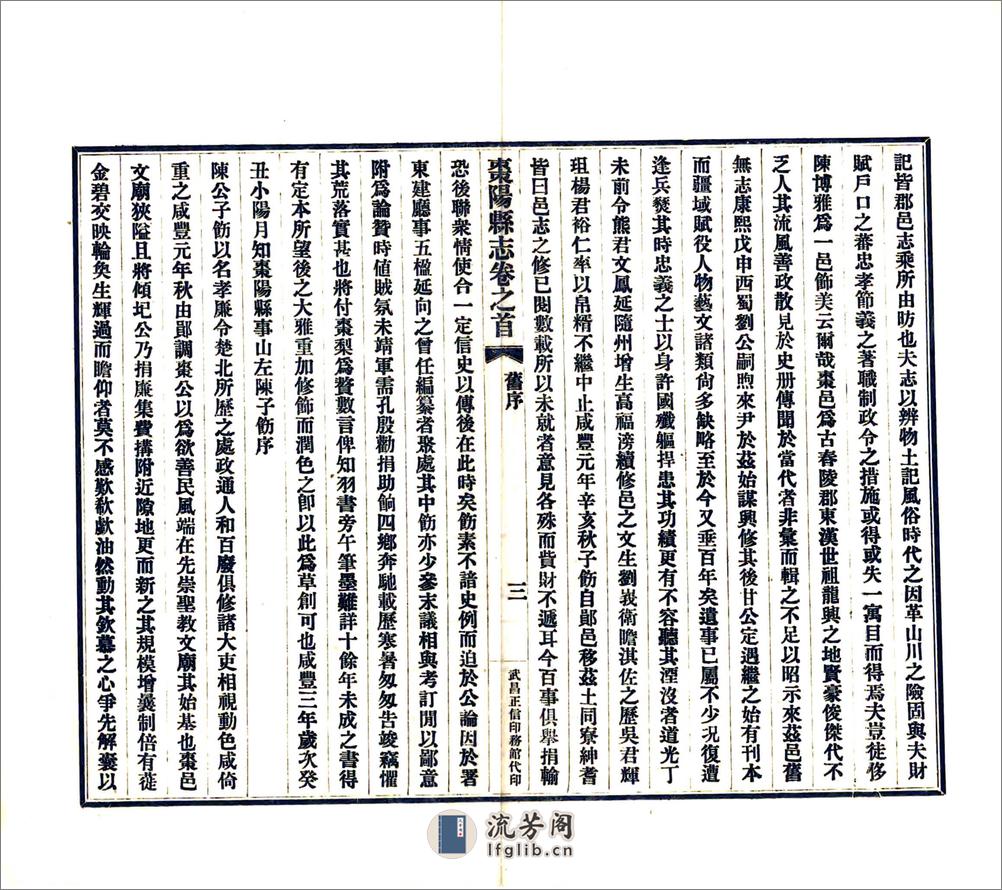 記皆郡邑志乘所由昉也夫志以辨物土記風俗時代之因革山川之險固與夫財
賦戶口之蕃忠孝節義之著職制政令之措施或得或失一寓目而得焉夫豈徒侈
陳博雅爲一邑飾美云爾哉棗邑爲古舂陵郡東漢世祖龍興之地賢豪俊傑代不
乏人其流風善政散見於史册傳聞於當代者非彙而輯之不足以昭示來茲邑舊
無志康熙戊申西蜀劉公嗣煦來尹於茲始謀興修其後甘公定遇繼之始有刊本
而疆域賦役人物藝文諸類尙多缺略至於今又垂百年矣遺事已屬不少況復遭
逢兵燹其時忠義之士以身許國殲軀捍患其功績更有不容聽其湮沒者道光丁
未前令熊君文鳳延隨州增生高福滂續修邑之文生劉峩衛瞻淇佐之歷吳君輝
珇楊君裕仁率以帛糈不繼中止咸豐元年辛亥秋子飭自鄖邑移茲土同寮紳耆
皆曰邑志之修已閱數載所以未就者意見各殊而貲財不遞耳今百事俱舉捐輸
棗陽縣志卷之首
舊序
三
武昌正信印務館代印
恐後聯衆情使合一定信史以傳後在此時矣飭素不諳史例而迫於公論因於署
東建廳事五楹延向之曾任編纂者聚處其中飭亦少參末議相與考訂閒以鄙意
附爲論贊時値賊氛未靖軍需孔殷勸捐助餉四鄉奔馳載歷寒暑匆匆告竣竊懼
其荒落實甚也將付棗梨爲贅數言俾知羽書旁午筆墨難詳十餘年未成之書得
有定本所望後之大雅重加修飾而潤色之卽以此爲草創可也咸豐三年歲次癸
丑小陽月知棗陽縣事山左陳子飭序
陳公子飭以名孝廉令楚北所歷之處政通人和百廢俱修諸大吏相視動色咸倚
重之咸豐元年秋由鄖調棗公以爲欲善民風端在先崇聖教文廟其始基也棗邑
文廟狹隘且將傾圮公乃捐廉集費搆附近隙地更而新之其規模增曩制倍有蓰
金碧交映輪奐生輝過而瞻仰者莫不感歎欷歔油然動其欽慕之心爭先解囊以
流芳阁
lfglib.cn